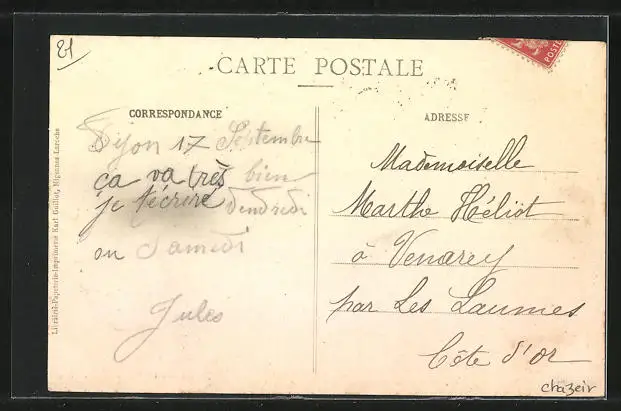 21
CARTE POSTALE
POSTE
CORRESPONDANCE
ADRESSE
Dijon 17 Septembre
ça va très bien
je t'écrire Vendredi
ou Samedi
Jules
Mademoiselle
Marthe Héliot
à Venarey
par Les Laumes
Côte d'Or
chazeir
Librairie-Papeterie-Imprimerie Karl Guillot, Migennes-Laroche